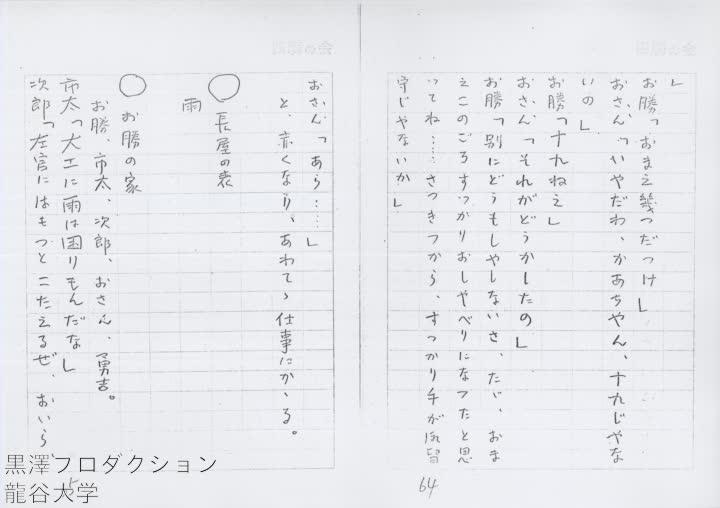 」
お勝「おまえ幾つだつけ」
おさん「いやだわ、かあちやん、十九じやな
いの」
お勝「十九ねえ」
おさん「それがどうかしたの」
お勝「別にどうもしやしないさ、たゞ、おま
えこのごろすつかりおしやべりになつたと思
つてね……さつきつから、すつかり手がお留
守じやないか」
64
おさん「あら……」
と、赤くなり、あわてゝ仕事にかゝる。
○ 長屋の表
雨
○ お勝の家
お勝、市太、次郎、おさん、勇吉。
市太「大工に雨は困りもんだな」
次郎「左官にはもつとこたえるぜ、おいら、
黒澤プロダクション
龍谷大学